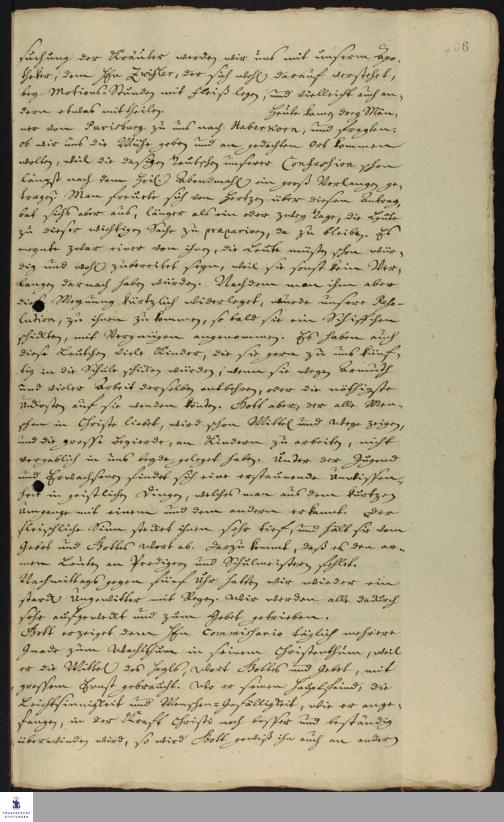 166
suchung der Kräuter werden wir uns mit unserm Apo-
theker, dem Hn Zwifler, der sich wohl darauf verstehet,
bey Motions-Stunden mit Fleiß legen, und vielleicht auch an-
dern etwas mittheilen. Heute kamen drey Män-
ner von Purisburg zu uns nach Habercorn, und fragten:
ob wir uns die Mühe geben und an gedachten Ort kommen
wolten, weil die dasigen Teutschen unserer Confession schon
längst nach dem Heil. Abendmahl ein groß Verlangen ge-
tragen? Man freuete sich von Hertzen über diesen Antrag,
bat sichs aber aus, länger als ein oder zwey Tage, die Leute
zu dieser wichtigen Sache zu praepariren, da zu bleiben. Es
meynte zwar einer von ihnen, die Leute müsten schon wür-
dig und wohl zubereitet seyn, weil sie sonst kein Ver-
langen darnach haben würden. Nachdem man ihm aber
diese Meynung kürtzlich widerleget, wurde unsere Reso-
lution, zu ihnen zu kommen, so bald sie ein Schiffchen
schickten, mit Vergnügen angenommen. Es haben auch
diese Teutschen viele Kinder, die sie gern zu uns künf-
tig in die Schule schicken würden, wenn sie wegen Armuth
und vieler Arbeit derselben entbehren, oder die nöthigste
Unkosten auf sie wenden könten. Gott aber, der alle Men-
schen in Christo liebet, wird schon Mittel und Wege zeigen,
und die grosse Begierde, an Kindern zu arbeiten, nicht
vergeblich in uns beyde geleget haben. Unter der Jugend
und Erwachsenen findet sich eine erstaunende Unwissen-
heit in geistlichen Dingen, welches man aus dem kurtzen
Umgange mit einem und dem andern erkennt. Der
fleischliche Sinn stecket ihnen sehr tief, und hält sie vom
Gebet und Gottes Wort ab. Darzu kommt, daß es den ar-
men Leuten an Predigern und Schulmeistern fehlet.
Nachmittags gegen fünf Uhr hatten wir wieder ein
starck Ungewitter mit Regen. Wir werden alle dadurch
sehr aufgeweckt und zum Gebet getrieben.
Gott erzeiget dem Hn Commissario täglich mehrere
Gnade zum Wachsthum in seinem Christenthum, weil
er die Mittel des Heyls, Wort Gottes und Gebet, mit
grossem Ernst gebraucht. Wo er seinen Hauptfeind, die
Leichtsinnigkeit und Menschen-Gefälligkeit, wie er ange-
fangen, in der Kraft Christi noch besser und beständig
überwinden wird, so wird Gott gewiß ihn auch an andern
FRANCKESCHE
STIFTUNGEN